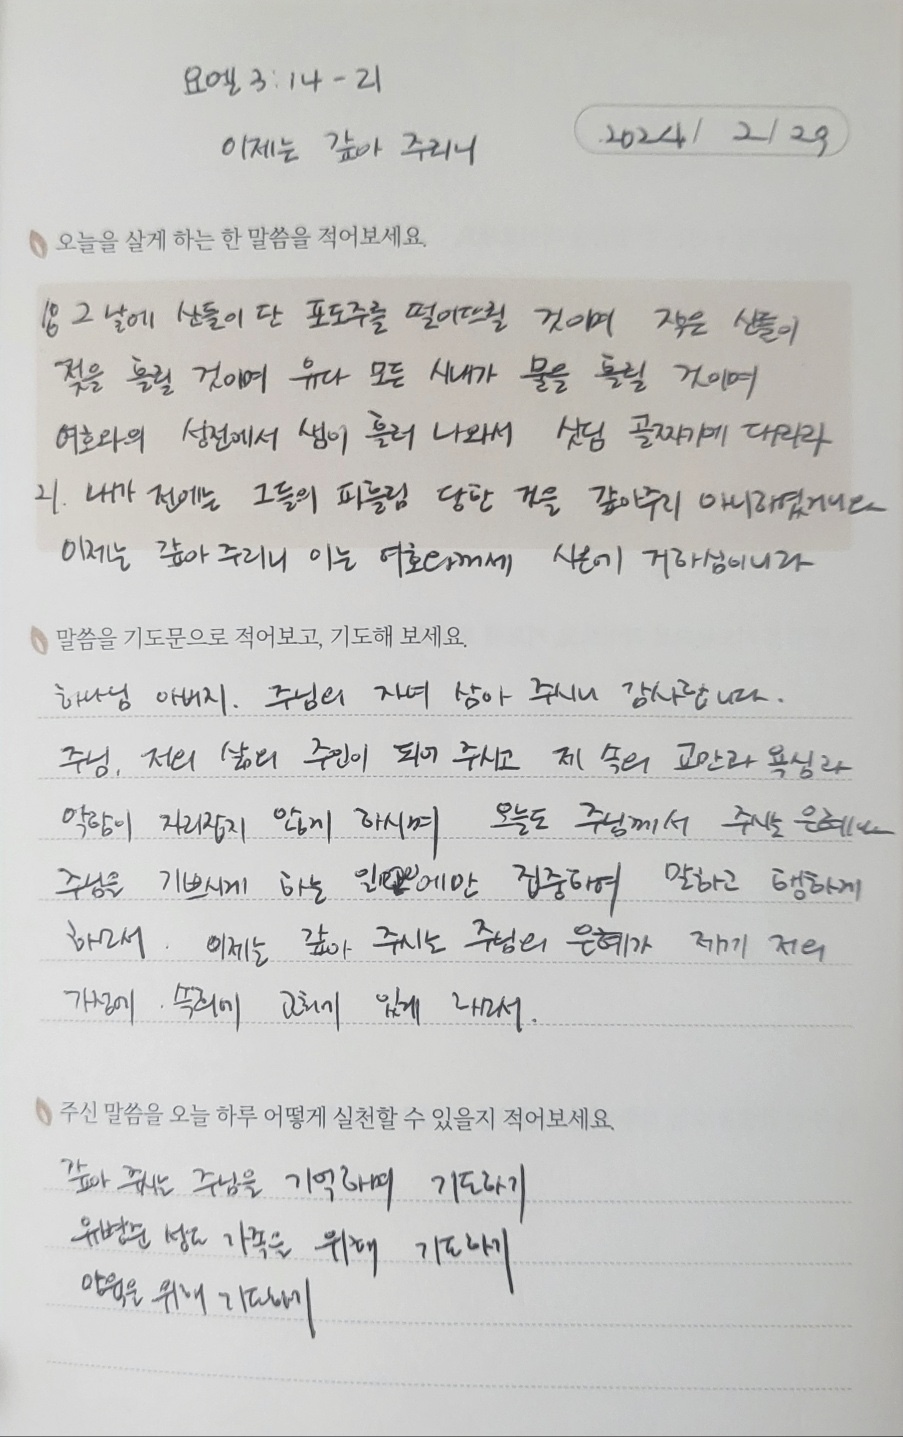 요엘 3:14-21
이제는 갚아 주리니
2024/ 2/ 29
오늘을 살게 하는 한 말씀을 적어보세요.
18 그 날에 산들이 단 포도주를 떨어뜨릴 것이며 작은 산들이
젖을 흘릴 것이며 유다 모든 시내가 물을 흘릴 것이며
여호와의 성전에서 샘이 흘러 나와서 싯딤 골짜기에 대리라
21. 내가 전에는 그들의 피흘림 당한 것을 갚아주리 아니하였거니와
이제는 갚아 주리니 이는 여호와께서 시온에 거하심이니라
말씀을 기도문으로 적어보고, 기도해 보세요.
하나님 아버지. 주님의 자녀 삼아 주시니 감사합니다.
주님, 저의 삶의 주인이 되어 주시고 제 속의 교만과 욕심과
악함이 자리잡지 않게 하시며 오늘도 주님께서 주시는 은혜와
주님을 기쁘시게 하는 일에만 집중하여 말하고 행하게
하소서. 이제는 갚아 주시는 주님의 은혜가 저의
가정에 교회에 있게 하소서.
주신 말씀을 오늘 하루 어떻게 실천할 수 있을지 적어보세요.
갚아 주시는 주님을 기억하며 기도하기
성도 가족을 위해 기도하기
위해 기도하기